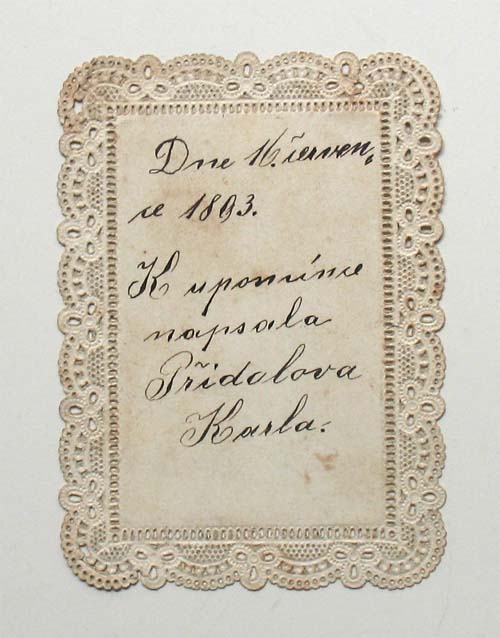 Dne 16. červen„
ce 1893.
K upomínce
napsala
Přidalova
Karla.